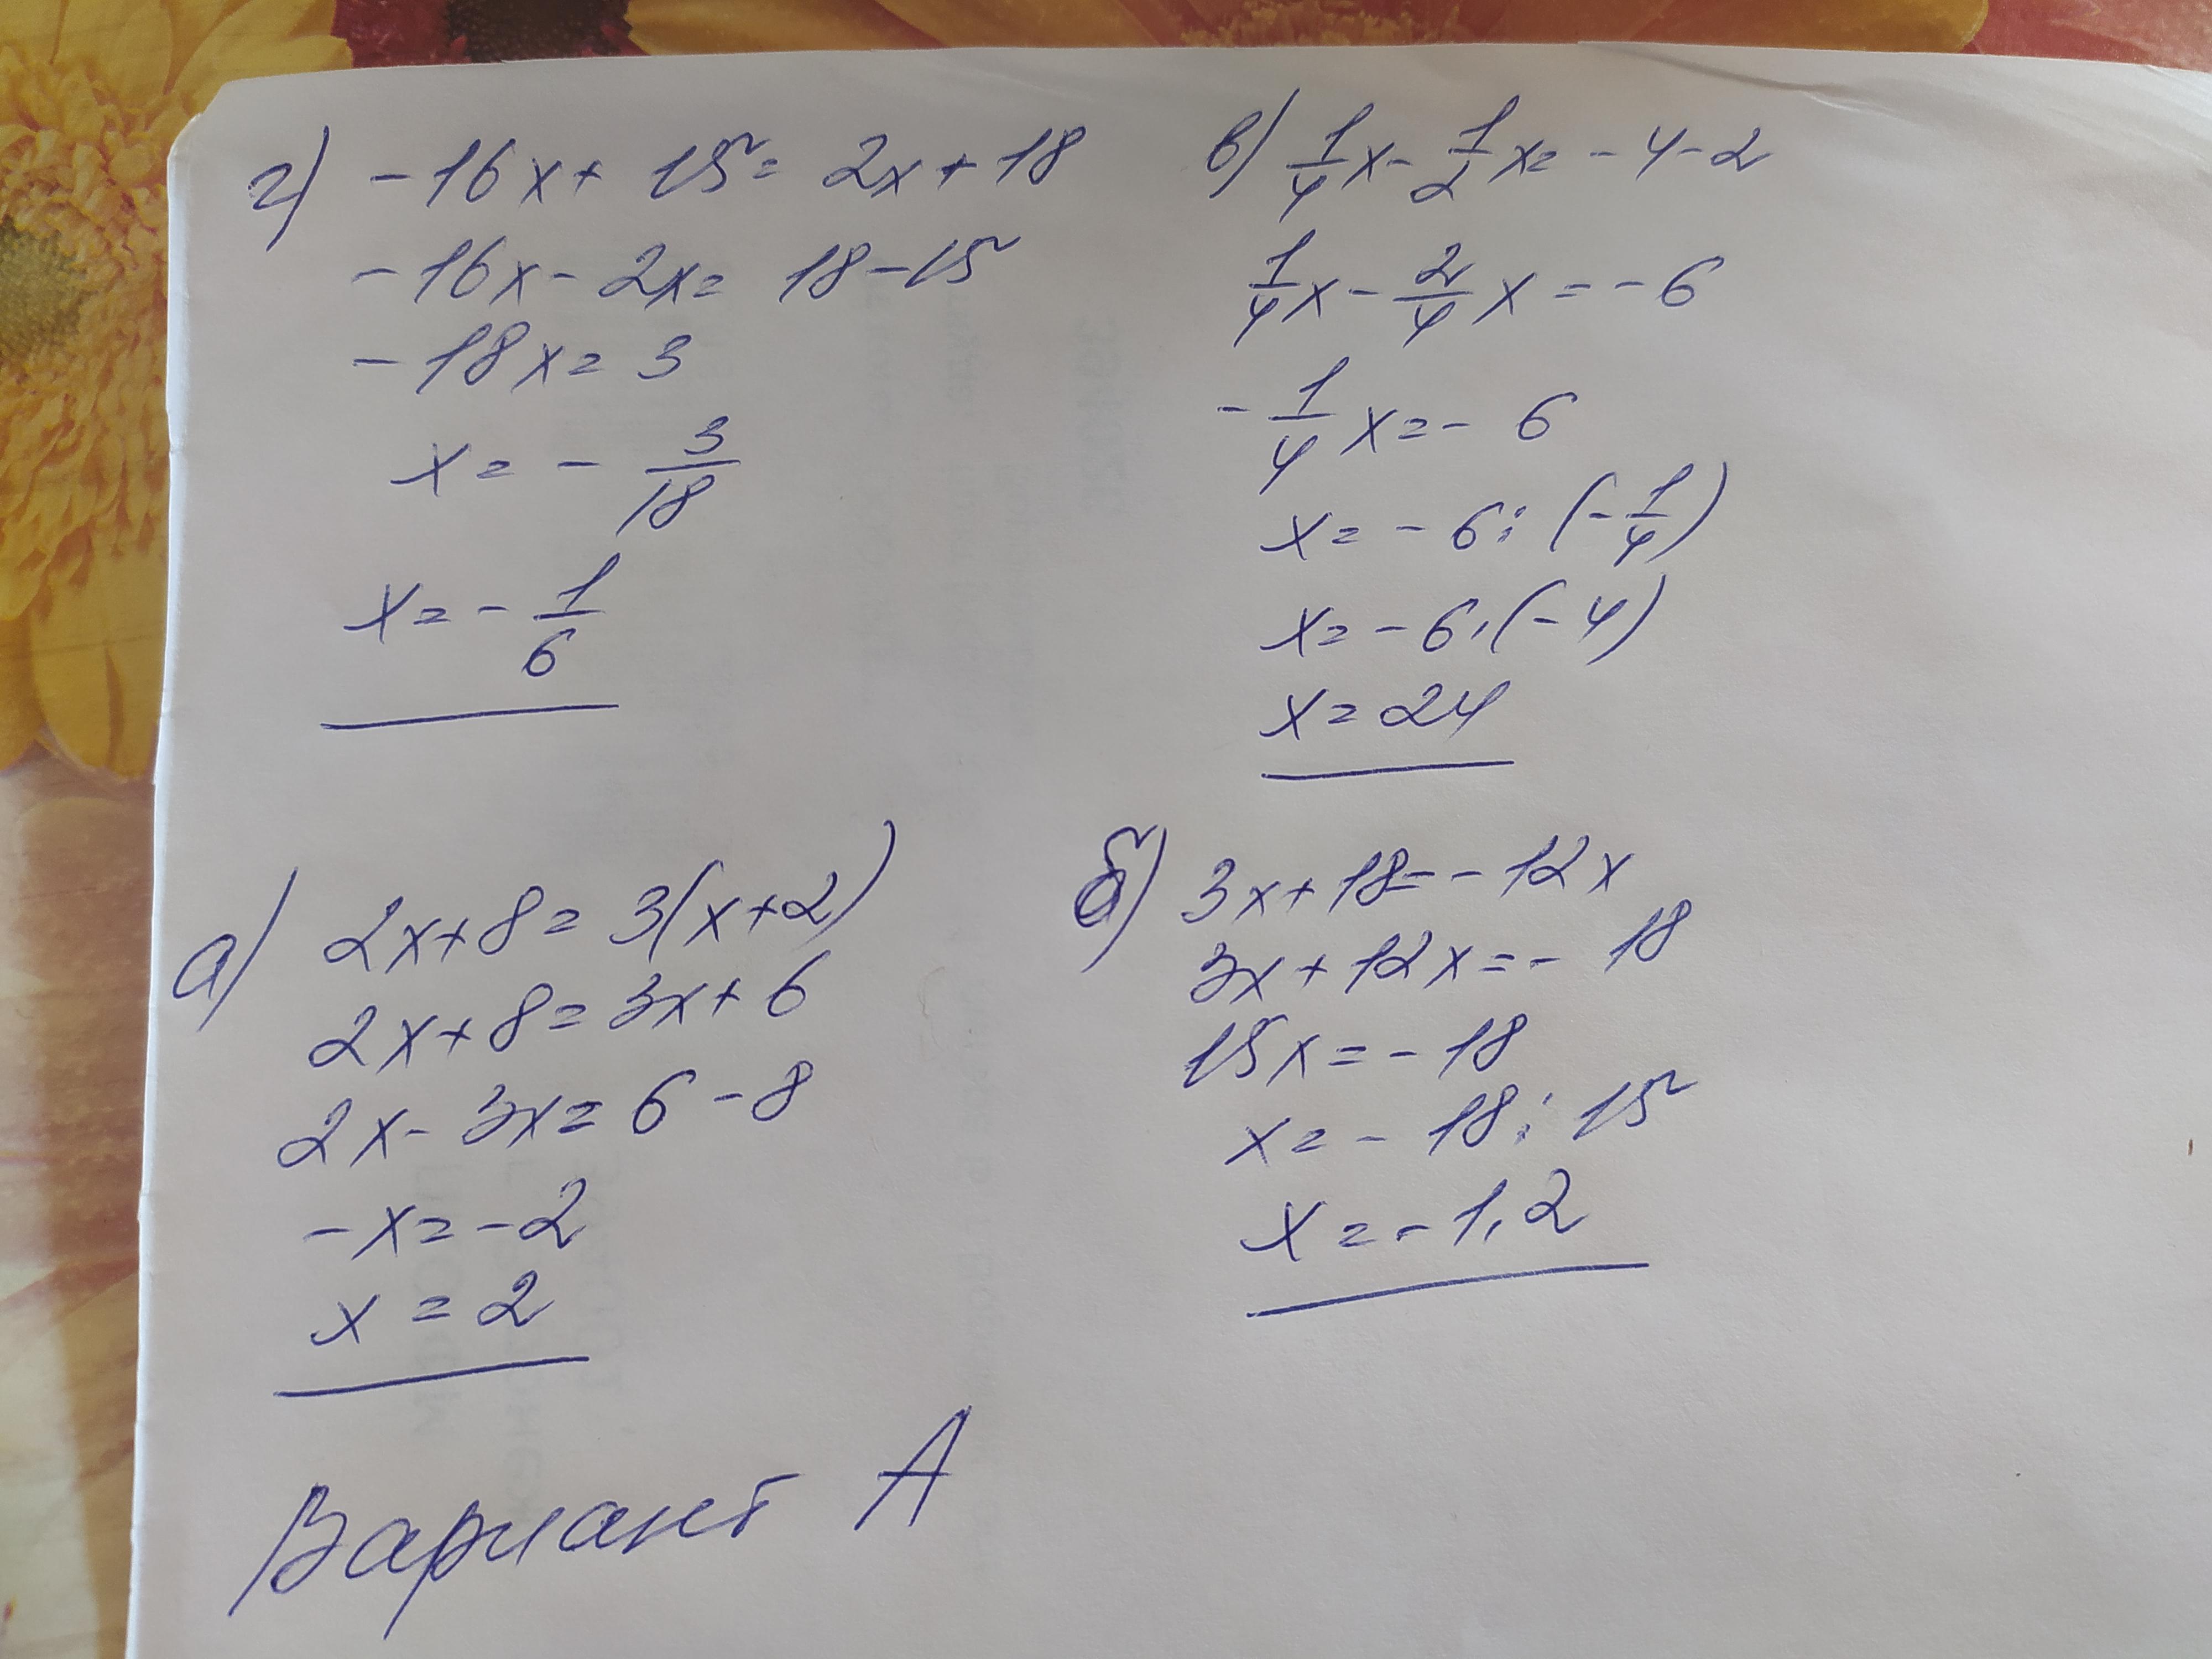 г) -16x + 15 = 2x + 18
-16x - 2x = 18 - 15
-18x = 3
x = - 3/18
x = - 1/6
в) 1/4x - 1/2x = -4-2
1/4x - 2/4x = -6
-1/4x = -6
x = -6 : (-1/4)
x = -6 · (-4)
x = 24
а) 2x+8 = 3(x+2)
2x+8 = 3x+6
2x - 3x = 6 - 8
-x = -2
x = 2
б) 3x+18 = -12x
3x+12x = -18
15x = -18
x = -18 : 15
x = -1,2
Вариант А